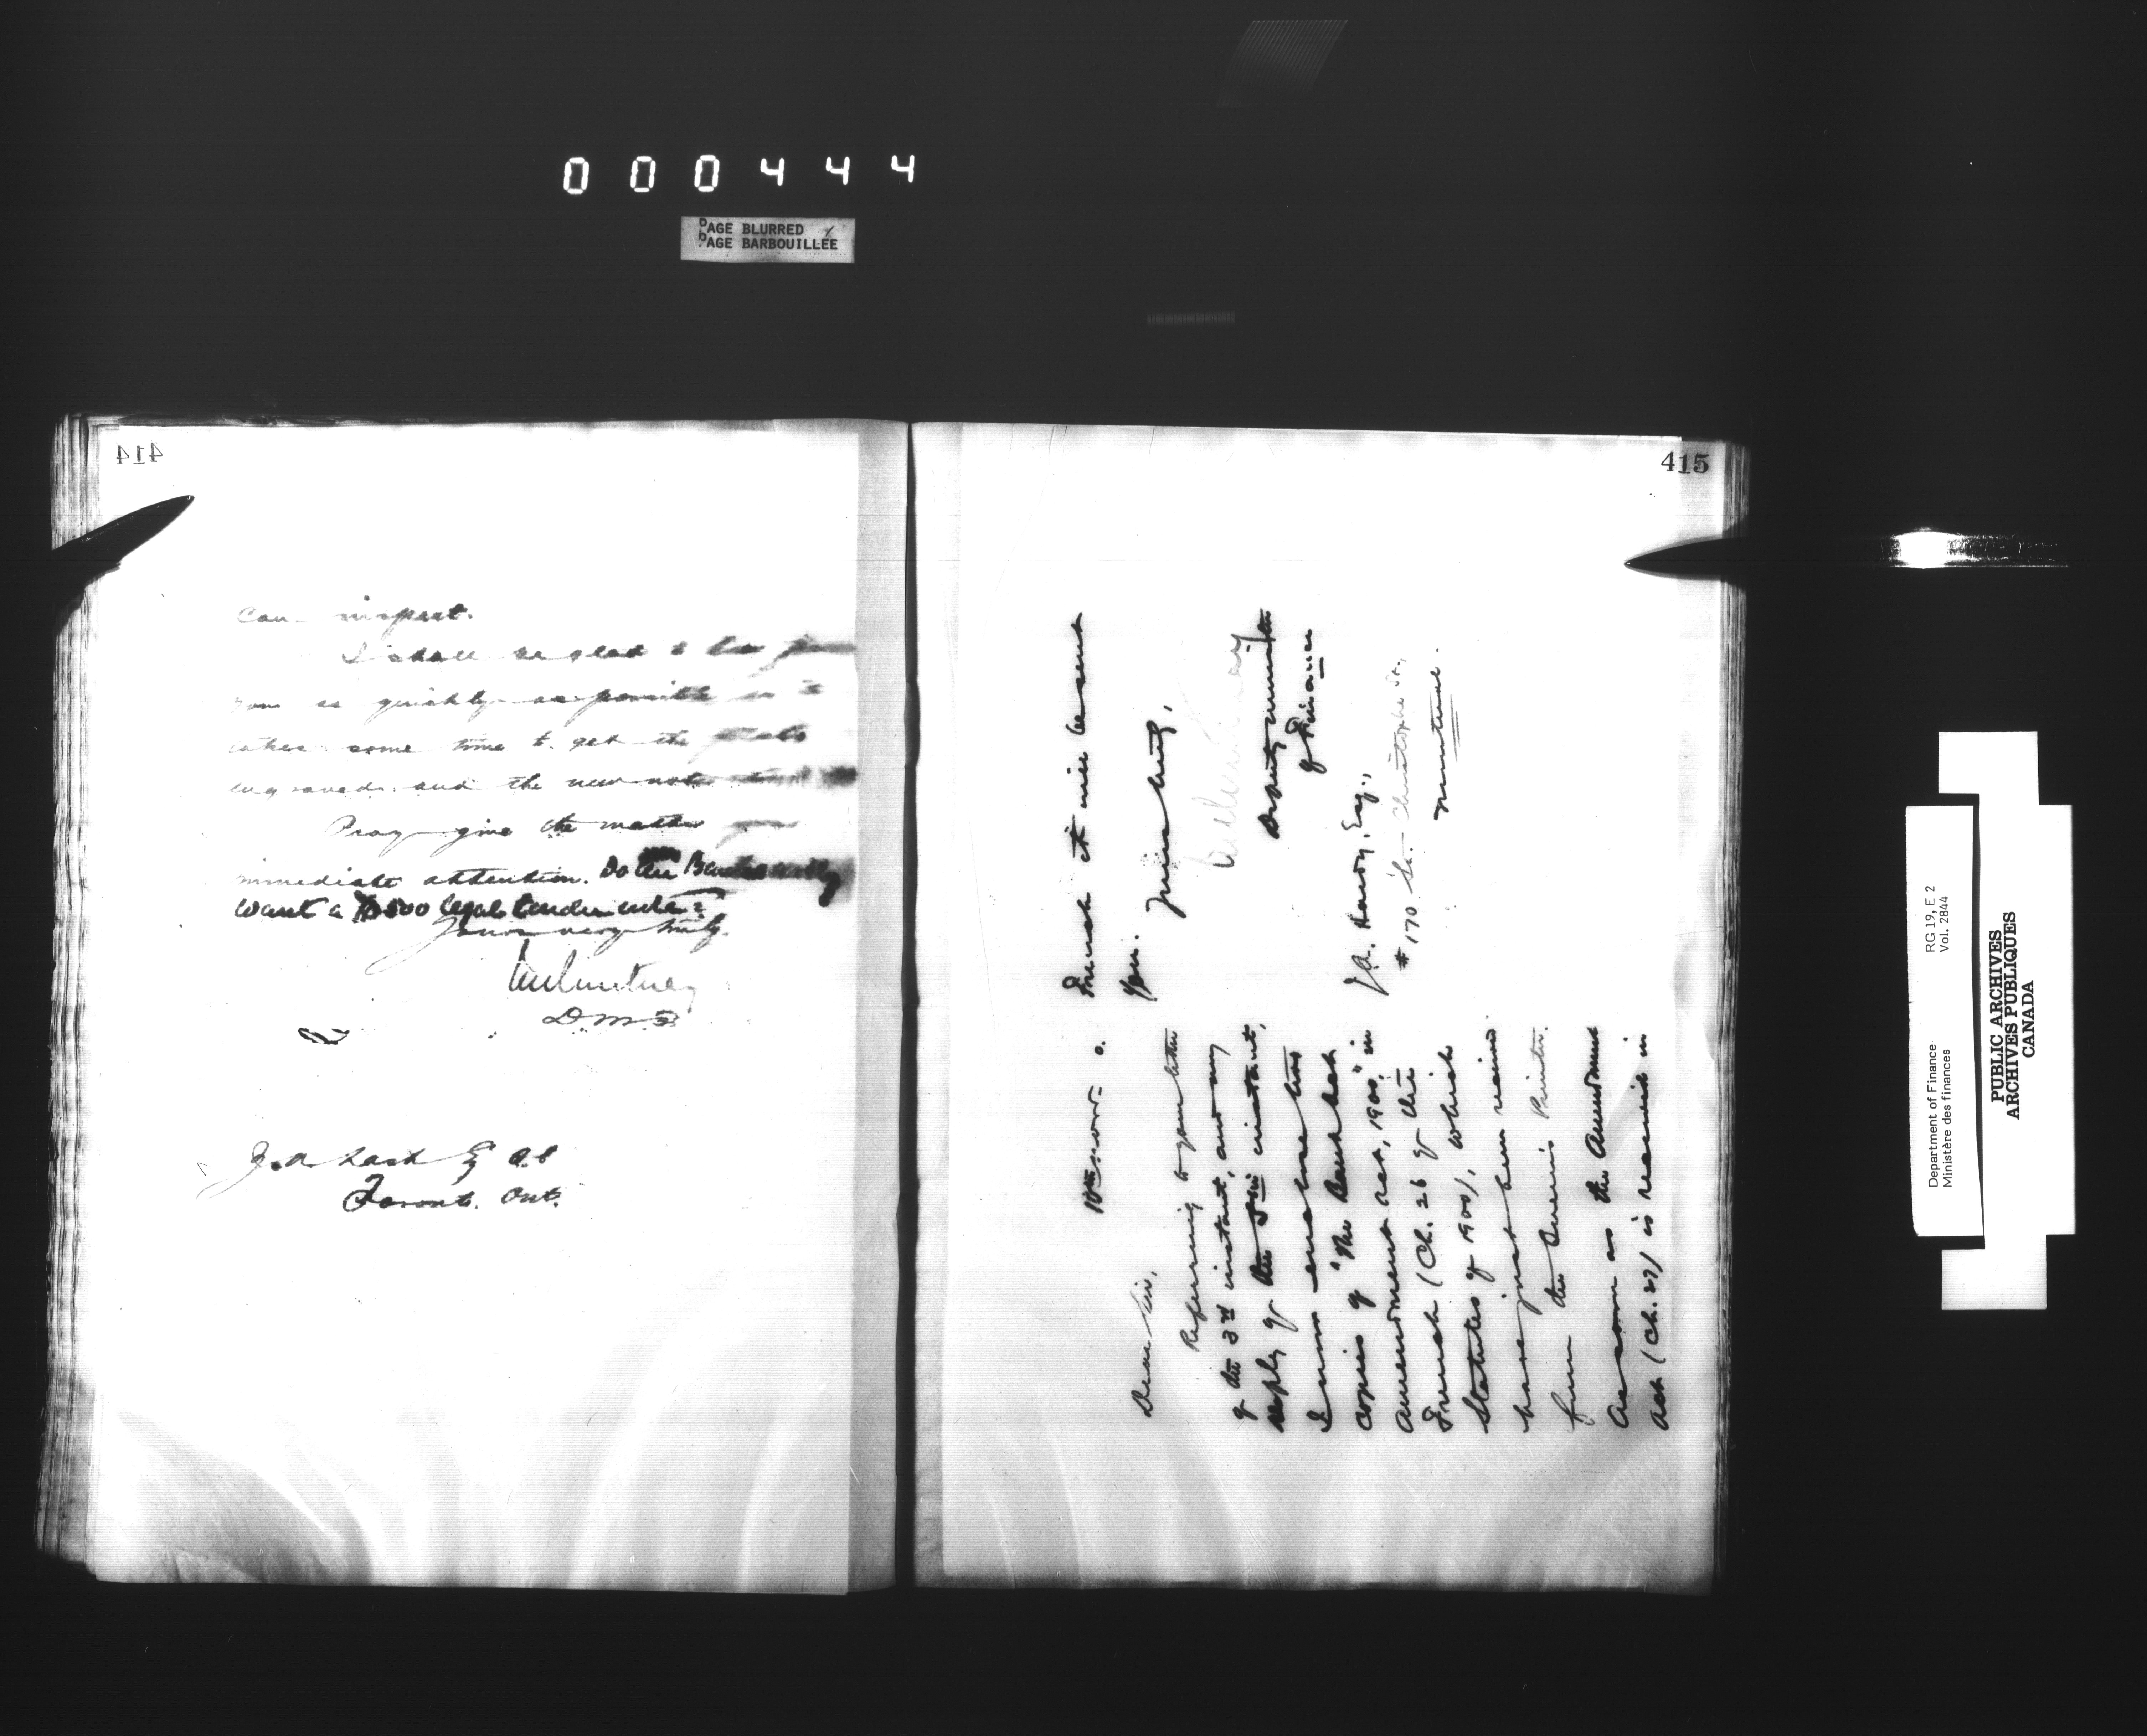 000444
PAGE BLURRED
PAGE BARBOUILLÉE
414
can inspect.
I shall be glad to hear from
you as quickly as possible as it
takes some time to get the plates
engraved and the new notes
Pray give the matter your
immediate attention. Do the Banks really
want a $500 legal tender note?
Yours very truly,
D M F
Z. A. Lash Esq Q.C.
Toronto. Ont.
415
10th Novr. 0.
Dear Sir,
Referring to your letter
of the 3rd instant, and my
reply of the 5th instant,
I now enclose two
copies of "The Bank Act
Amendment Act, 1900," in
French (Ch. 26 of the
Statutes of 1900), which
have just been received
from the Queen's Printer.
As soon as the Amendment
Act (Ch. 27) is received in
French it will be sent
you.
Yours truly,
Deputy Minister
of Finance
J. A. Esq.,
# 170 St. Christophe St.,
Montreal.
Department of Finance
Ministère des finances
RG 19, E 2
Vol. 2844
PUBLIC ARCHIVES
ARCHIVES PUBLIQUES
CANADA